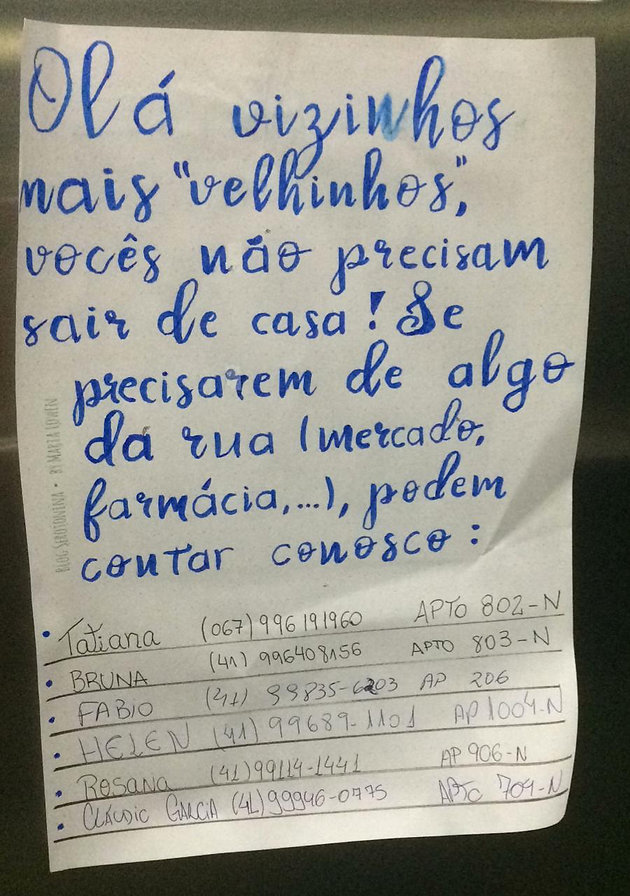 Olá vizinhos
mais "velhinhos",
vocês não precisam
sair de casa! Se
precisarem de algo
da rua (mercado,
farmácia,...), podem
contar conosco:
BLOG SEROTONINA • BY MARTA LOWEN
• Tatiana (067) 996191960 APTO 802-N
• BRUNA (41) 996408156 APTO 803-N
• FABIO (41) 99835-6203 AP 206
• HELEN (41) 99689-1101 AP 1004-N
• Rosana (41) 99114-1441 AP 906-N
• CLÁUDIO GARCIA (41) 99946-0775 APTO 704-N